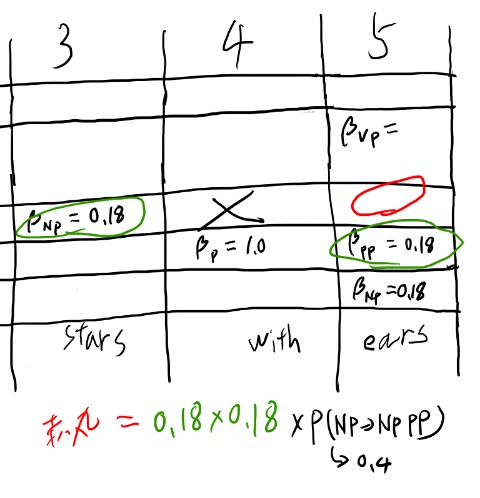 3 4 5
βVP =
βNP = 0.18
βP = 1.0 βPP = 0.18
βNP = 0.18
stars with ears
赤丸 = 0.18 × 0.18 × P(NP→NP PP)
↳ 0.4